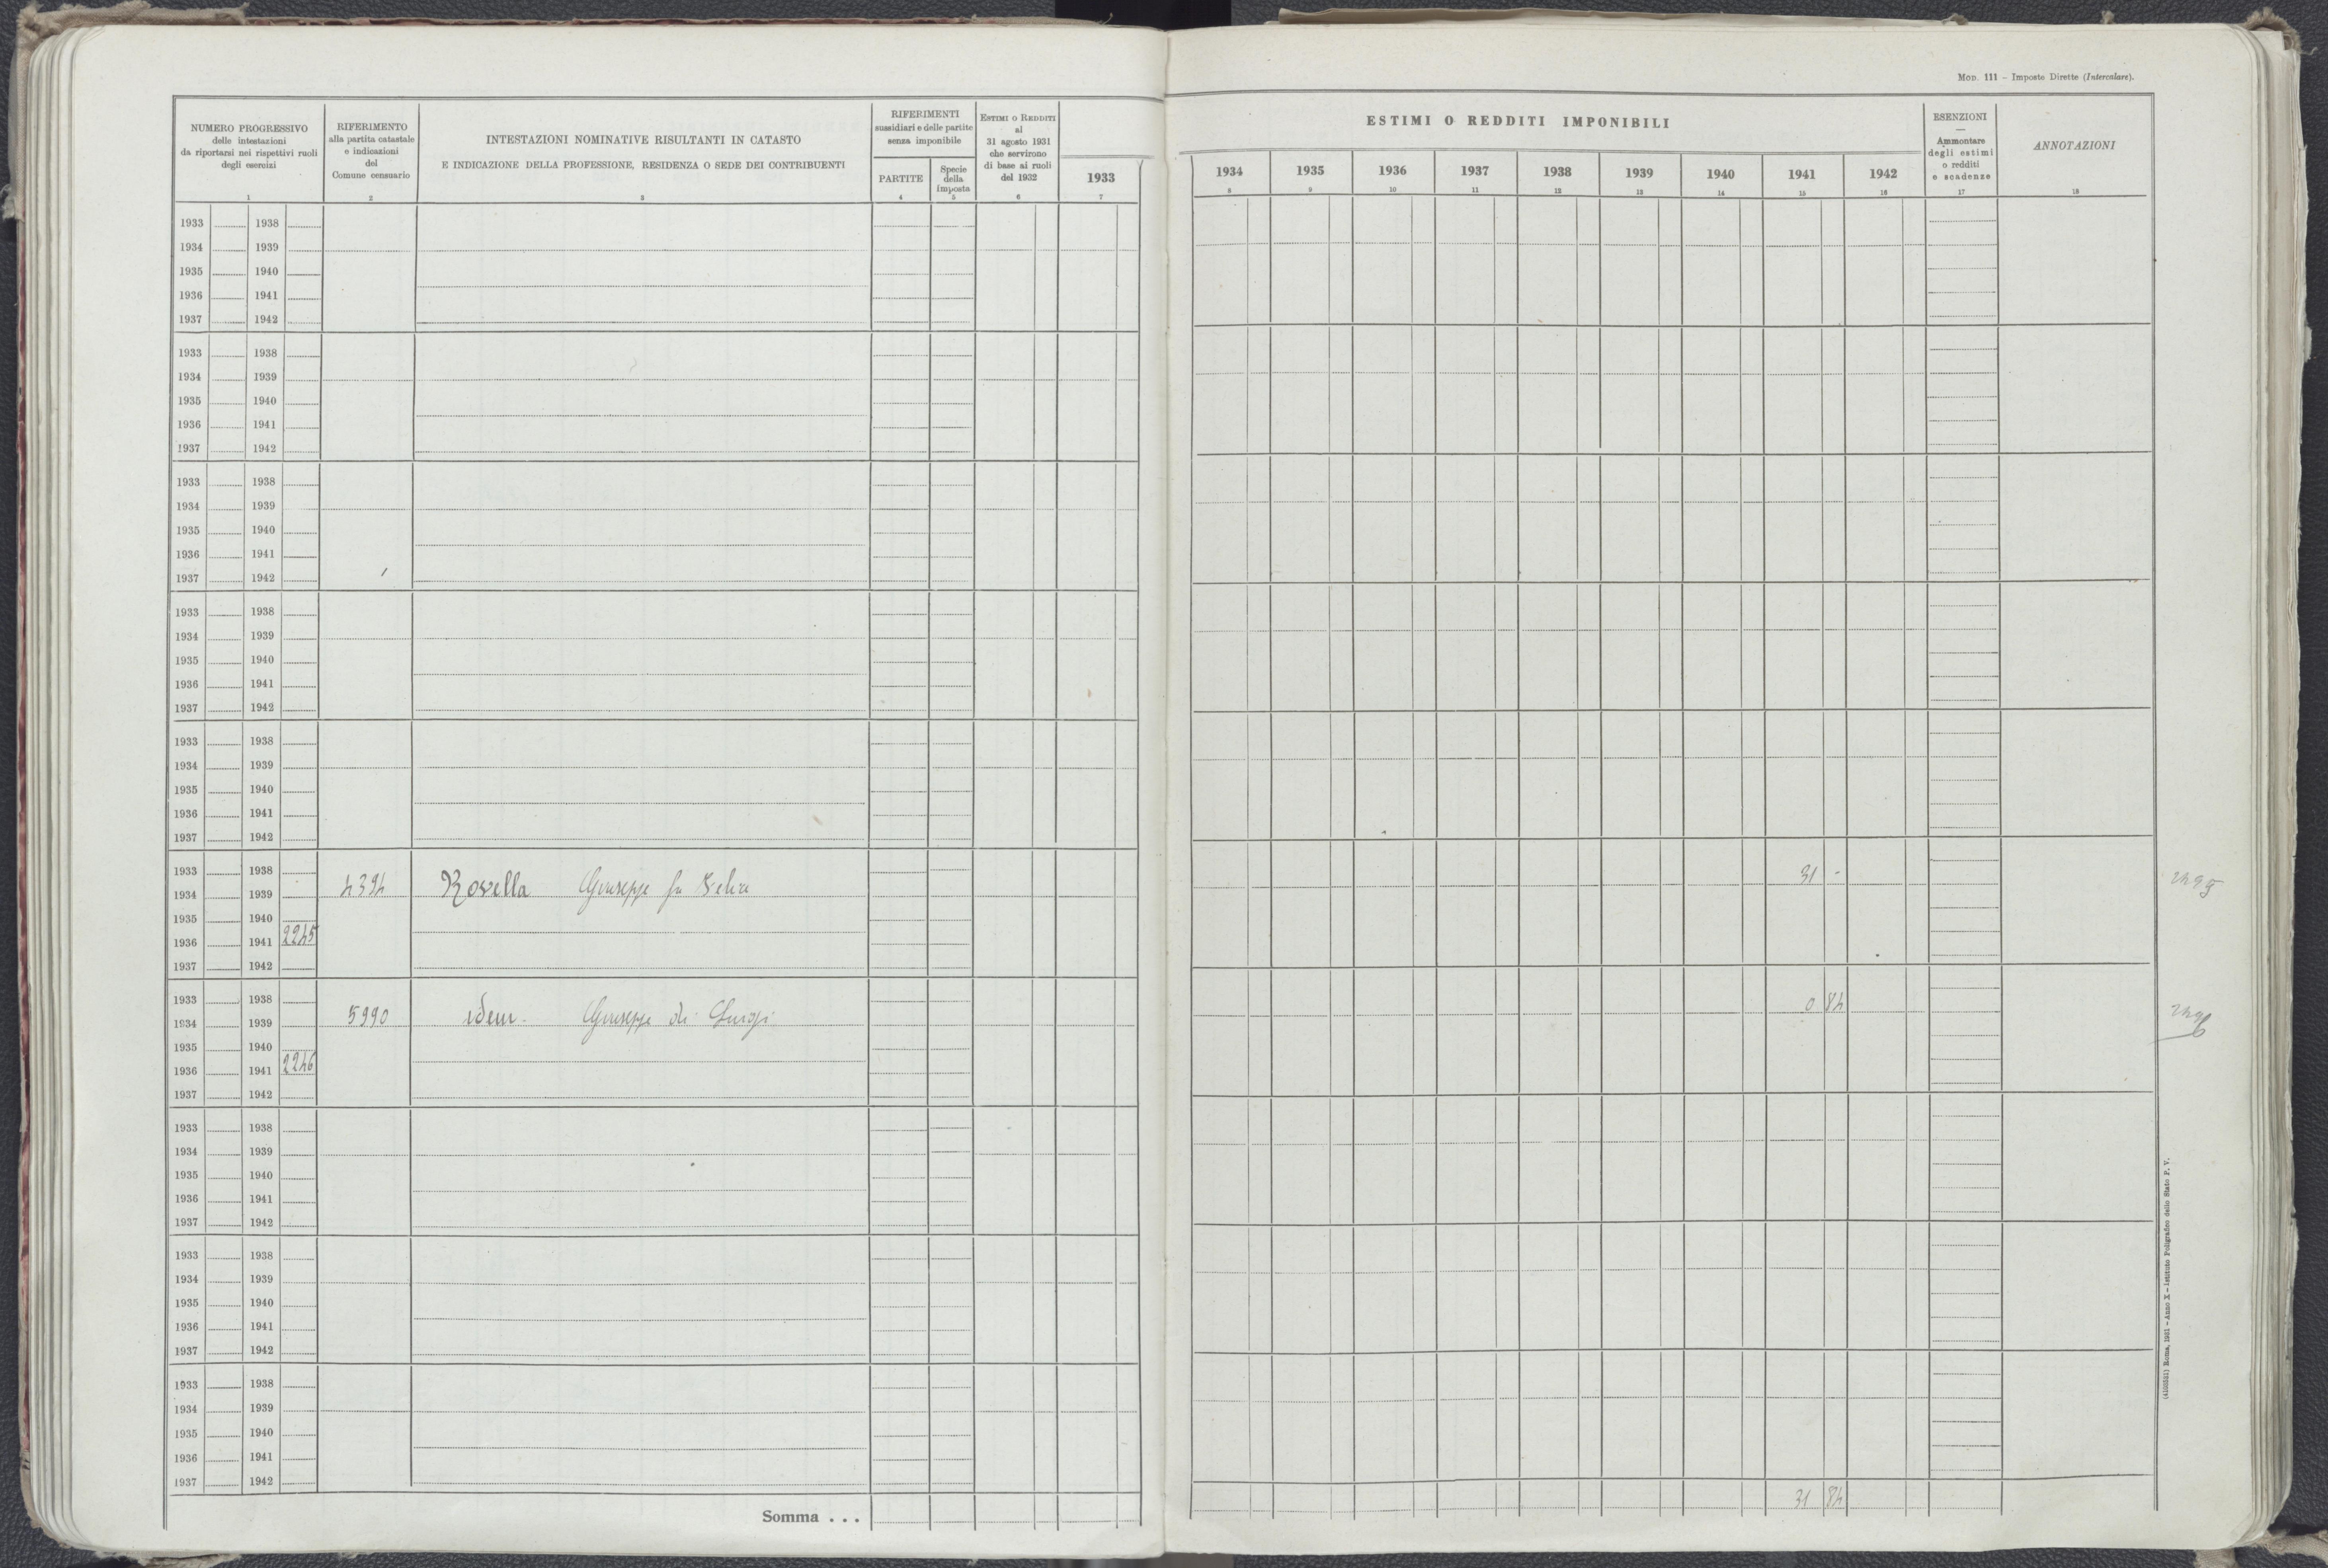 Mod. 111 – Imposte Dirette (Intercalare).
NUMERO PROGRESSIVO
delle intestazioni
da riportarsi nei rispettivi ruoli
degli esercizi
1
RIFERIMENTO
alla partita catastale
e indicazioni
del
Comune censuario
2
INTESTAZIONI NOMINATIVE RISULTANTI IN CATASTO
E INDICAZIONE DELLA PROFESSIONE, RESIDENZA O SEDE DEI CONTRIBUENTI
3
RIFERIMENTI
sussidiari e delle partite
senza imponibile
PARTITE
4
Specie
della
imposta
5
Estimi o Redditi
al
31 agosto 1931
che servirono
di base ai ruoli
del 1932
6
1933
7
ESTIMI O REDDITI IMPONIBILI
1934 1935 1936 1937 1938 1939 1940 1941 1942
8 9 10 11 12 13 14 15 16
ESENZIONI
—
Ammontare
degli estimi
o redditi
e scadenze
17
ANNOTAZIONI
18
1933 1938
1934 1939
1935 1940
1936 1941
1937 1942
1933 1938
1934 1939
1935 1940
1936 1941
1937 1942
1933 1938
1934 1939
1935 1940
1936 1941
1937 1942
1933 1938
1934 1939
1935 1940
1936 1941
1937 1942
1933 1938
1934 1939
1935 1940
1936 1941
1937 1942
1933 1938 31 -
1934 1939 4394 Rovella Giuseppe fu 2495
1935 1940
1936 1941 2245
1937 1942
1933 1938 0 84
1934 1939 5990 idem Giuseppe di Luigi 2496
1935 1940
1936 1941 2246
1937 1942
1933 1938
1934 1939
1935 1940
1936 1941
1937 1942
1933 1938
1934 1939
1935 1940
1936 1941
1937 1942
1933 1938
1934 1939
1935 1940
1936 1941
1937 1942
Somma . . . 31 84
Roma, 1931 – Anno X – Istituto Poligrafico dello Stato P. V.